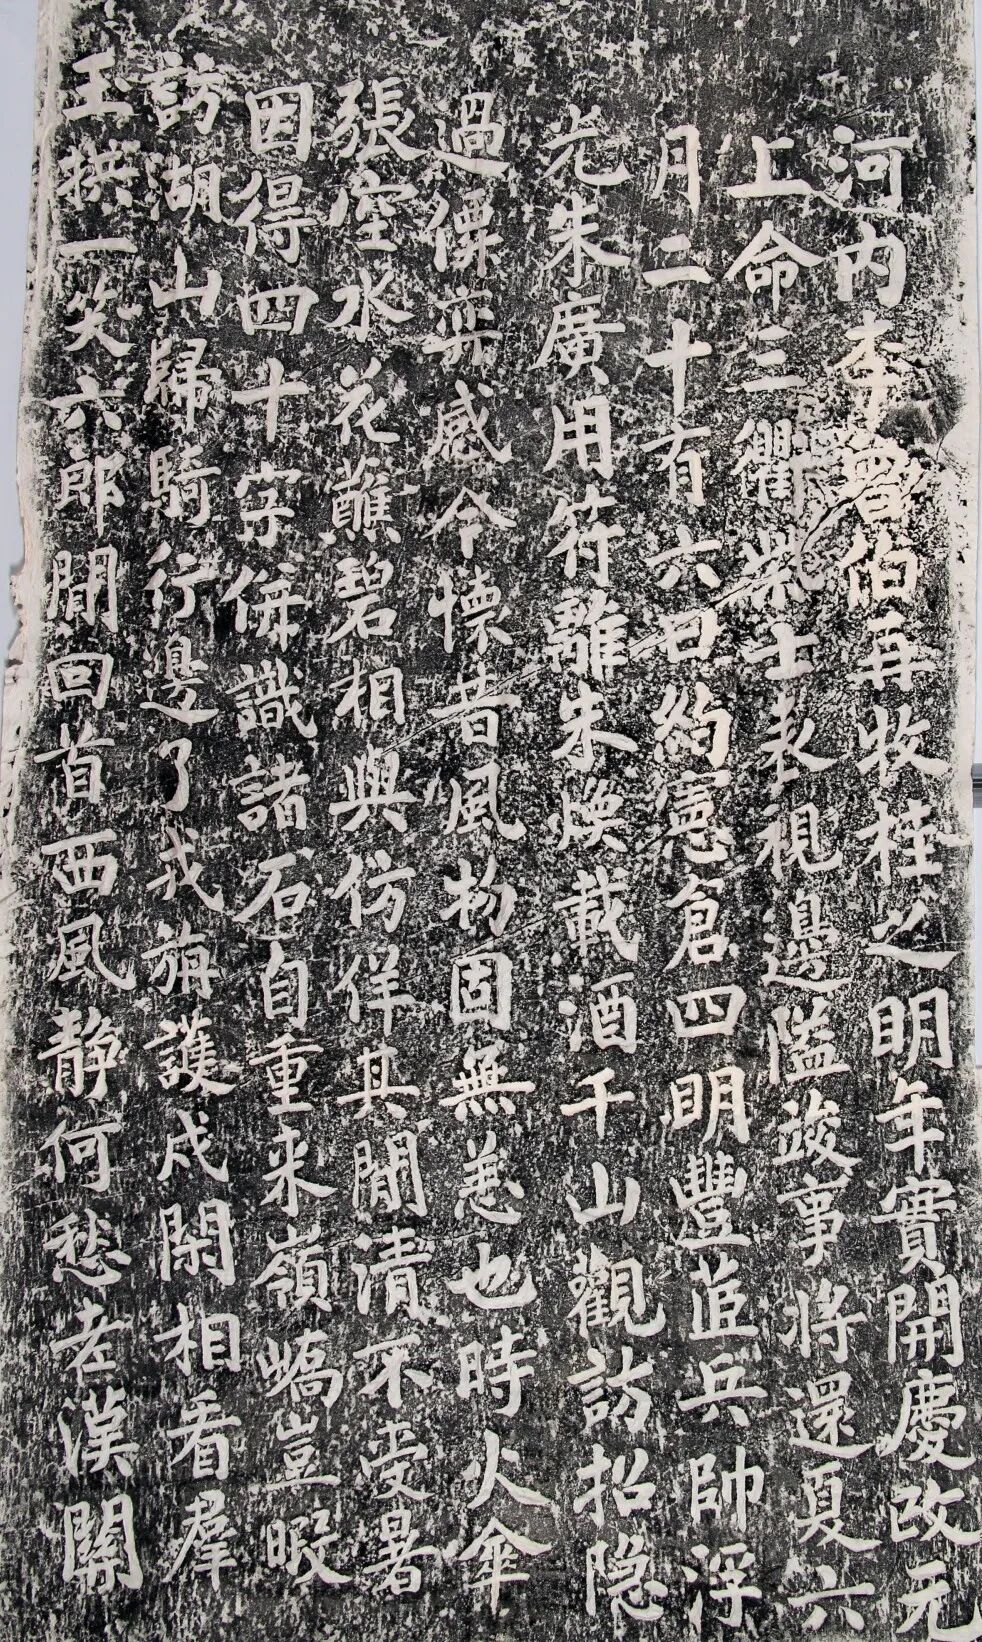 河內李曾伯再牧桂之明年實開慶改元
上命三衢柴士表視邊隘竣事將還夏六
月二十有六日約憲倉四明豐茝兵帥浮
光朱廣用符離朱煥載酒千山觀訪招隱
過僊弈感今懷昔風物固無恙也時火傘
張空水花蘸碧相與仿佯其閒清不受暑
因得四十字併識諸石自重來嶺嶠豈暇
訪湖山歸騎行邊了戎旃護戍閑相看羣
玉拱一笑六郎閒回首西風靜何愁老漢關